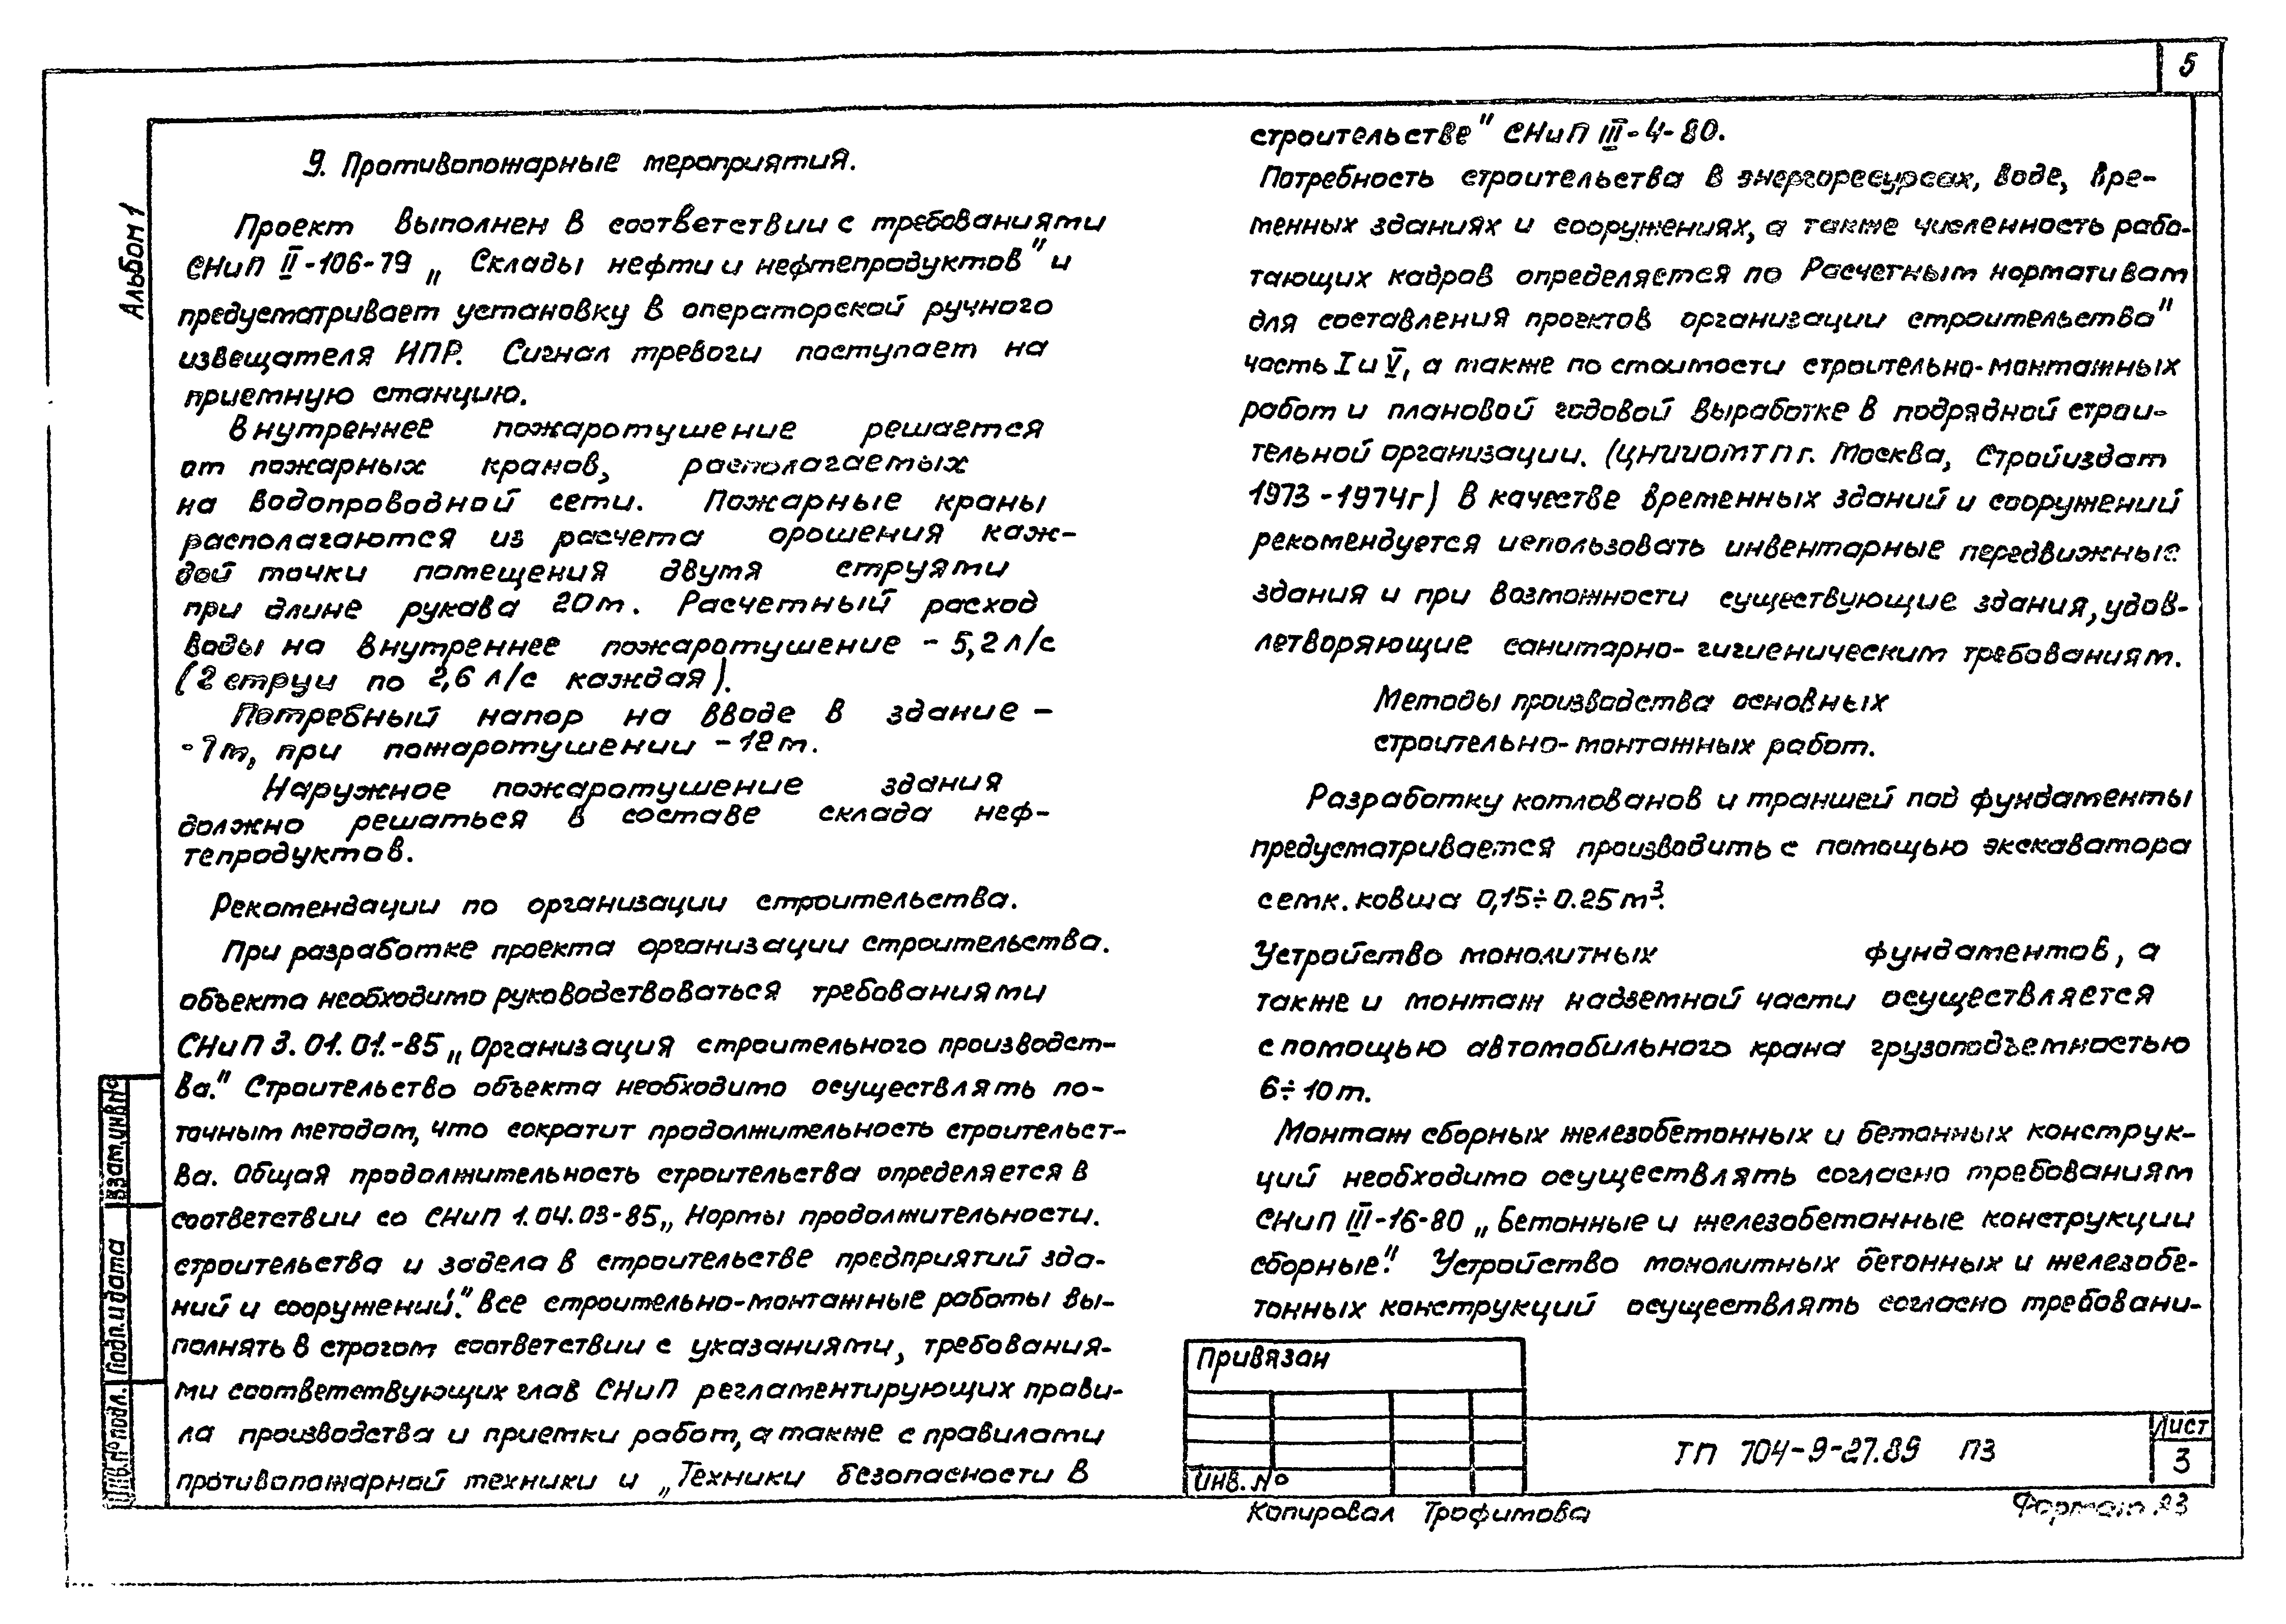 5
Альбом 1
9. Противопожарные мероприятия.
Проект выполнен в соответствии с требованиями
СНиП II-106-79 „Склады нефти и нефтепродуктов" и
предусматривает установку в операторской ручного
извещателя ИПР. Сигнал тревоги поступает на
приемную станцию.
Внутреннее пожаротушение решается
от пожарных кранов, располагаемых
на водопроводной сети. Пожарные краны
располагаются из расчета орошения каж-
дой точки помещения двумя струями
при длине рукава 20м. Расчетный расход
воды на внутреннее пожаротушение - 5,2 л/с
(2 струи по 2,6 л/с каждая).
Потребный напор на вводе в здание -
- 7м, при пожаротушении - 12м.
Наружное пожаротушение здания
должно решаться в составе склада неф-
тепродуктов.
Рекомендации по организации строительства.
При разработке проекта организации строительства.
объекта необходимо руководствоваться требованиями
СНиП 3.01.01.-85 „Организация строительного производст-
ва." Строительство объекта необходимо осуществлять по-
точным методом, что сократит продолжительность строительст-
ва. Общая продолжительность строительства определяется в
соответствии со СНиП 1.04.03-85 „Нормы продолжительности.
строительства и задела в строительстве предприятий зда-
ний и сооружений." Все строительно-монтажные работы вы-
полнять в строгом соответствии с указаниями, требования-
ми соответствующих глав СНиП регламентирующих прави-
ла производства и приемки работ, а также с правилами
противопожарной техники и „Техники безопасности в
строительстве" СНиП III-4-80.
Потребность строительства в энергоресурсах, воде, вре-
менных зданиях и сооружениях, а также численность рабо-
тающих кадров определяется по Расчетным нормативам
для составления проектов организации строительства"
часть I и V, а также по стоимости строительно-монтажных
работ и плановой годовой выработке в подрядной строи-
тельной организации. (ЦНИИОМТП г. Москва, Стройиздат
1973-1974г) В качестве временных зданий и сооружений
рекомендуется использовать инвентарные передвижные
здания и при возможности существующие здания, удов-
летворяющие санитарно-гигиеническим требованиям.
Методы производства основных
строительно-монтажных работ.
Разработку котлованов и траншей под фундаменты
предусматривается производить с помощью экскаватора
семк. ковша 0,15÷0.25м³.
Устройство монолитных фундаментов, а
также и монтаж надземной части осуществляется
с помощью автомобильного крана грузоподъемностью
6÷10т.
Монтаж сборных железобетонных и бетонных конструк-
ций необходимо осуществлять согласно требованиям
СНиП III-16-80 „Бетонные и железобетонные конструкции
сборные". Устройство монолитных бетонных и железобе-
тонных конструкций осуществлять согласно требовани-
Взам. инв №
Подп. и дата
Инв. № подл.
Привязан
Инв. №
ТП 704-9-27.89 ПЗ
Лист
3
Копировал Трофимова
Формат А3